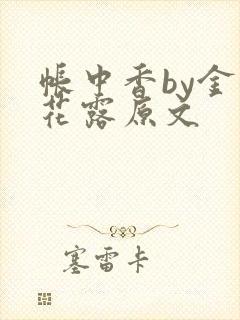 帐中香by金
花露原文
塞雷卡